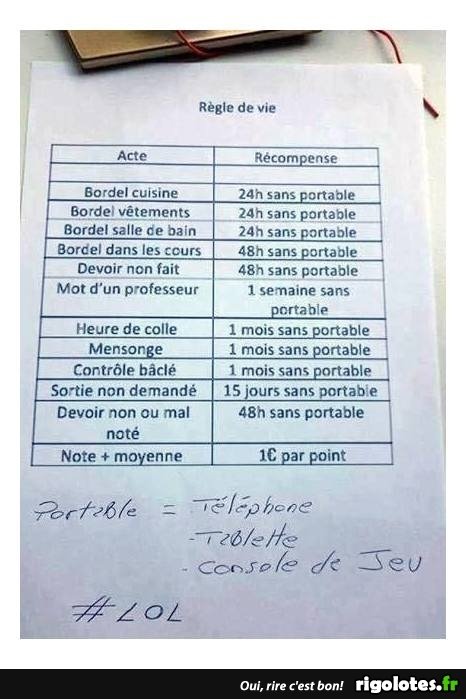 Règle de vie
Acte Récompense
Bordel cuisine 24h sans portable
Bordel vêtements 24h sans portable
Bordel salle de bain 24h sans portable
Bordel dans les cours 48h sans portable
Devoir non fait 48h sans portable
Mot d'un professeur 1 semaine sans
portable
Heure de colle 1 mois sans portable
Mensonge 1 mois sans portable
Contrôle bâclé 1 mois sans portable
Sortie non demandé 15 jours sans portable
Devoir non ou mal 48h sans portable
noté
Note + moyenne 1€ par point
Portable = . Téléphone
- Tablette
- Console de Jeu
#LOL
Oui, rire c'est bon! rigolotes.fr